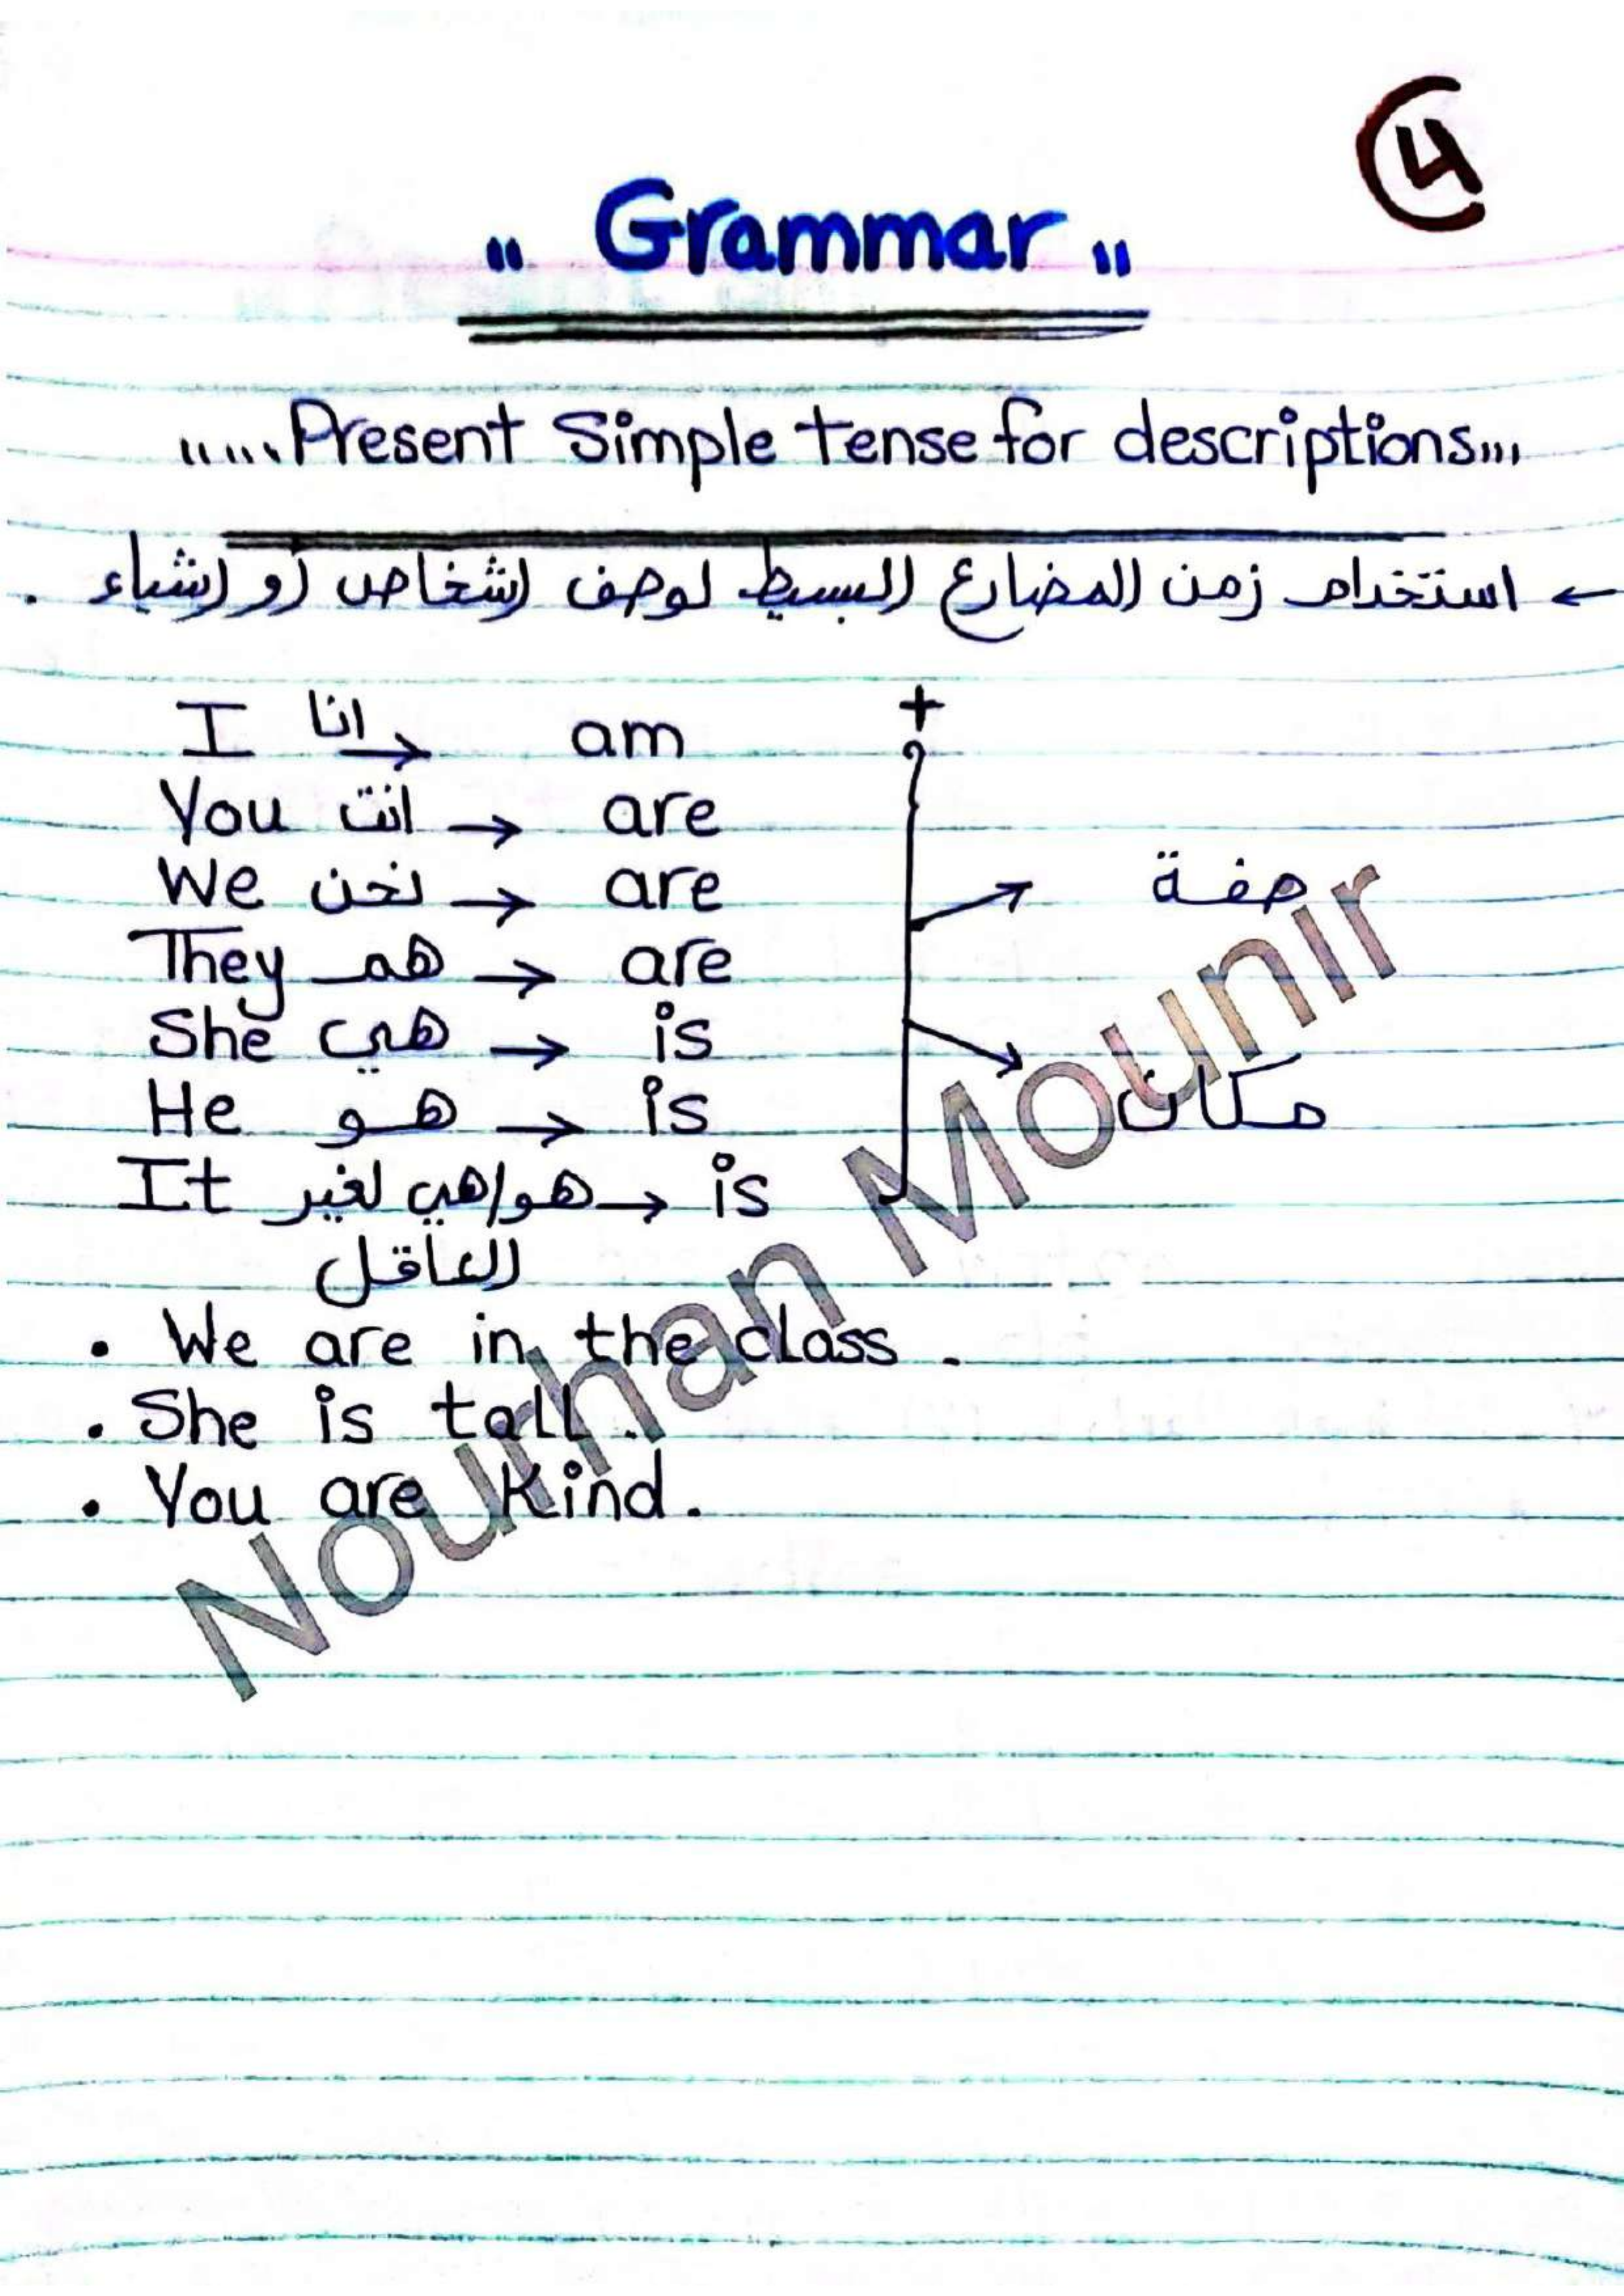 4
" Grammar "
..... Present Simple tense for descriptions...
← استخدام زمن المضارع البسيط لوصف اشخاص أو اشياء .
I انا → am +
You انت → are
We نحن → are صفة
They هم → are
She هي → is
He هو → is مكان
It هو/هي لغير → is
العاقل
• We are in the class .
• She is tall .
• You are Kind .
Nourhan Mounir